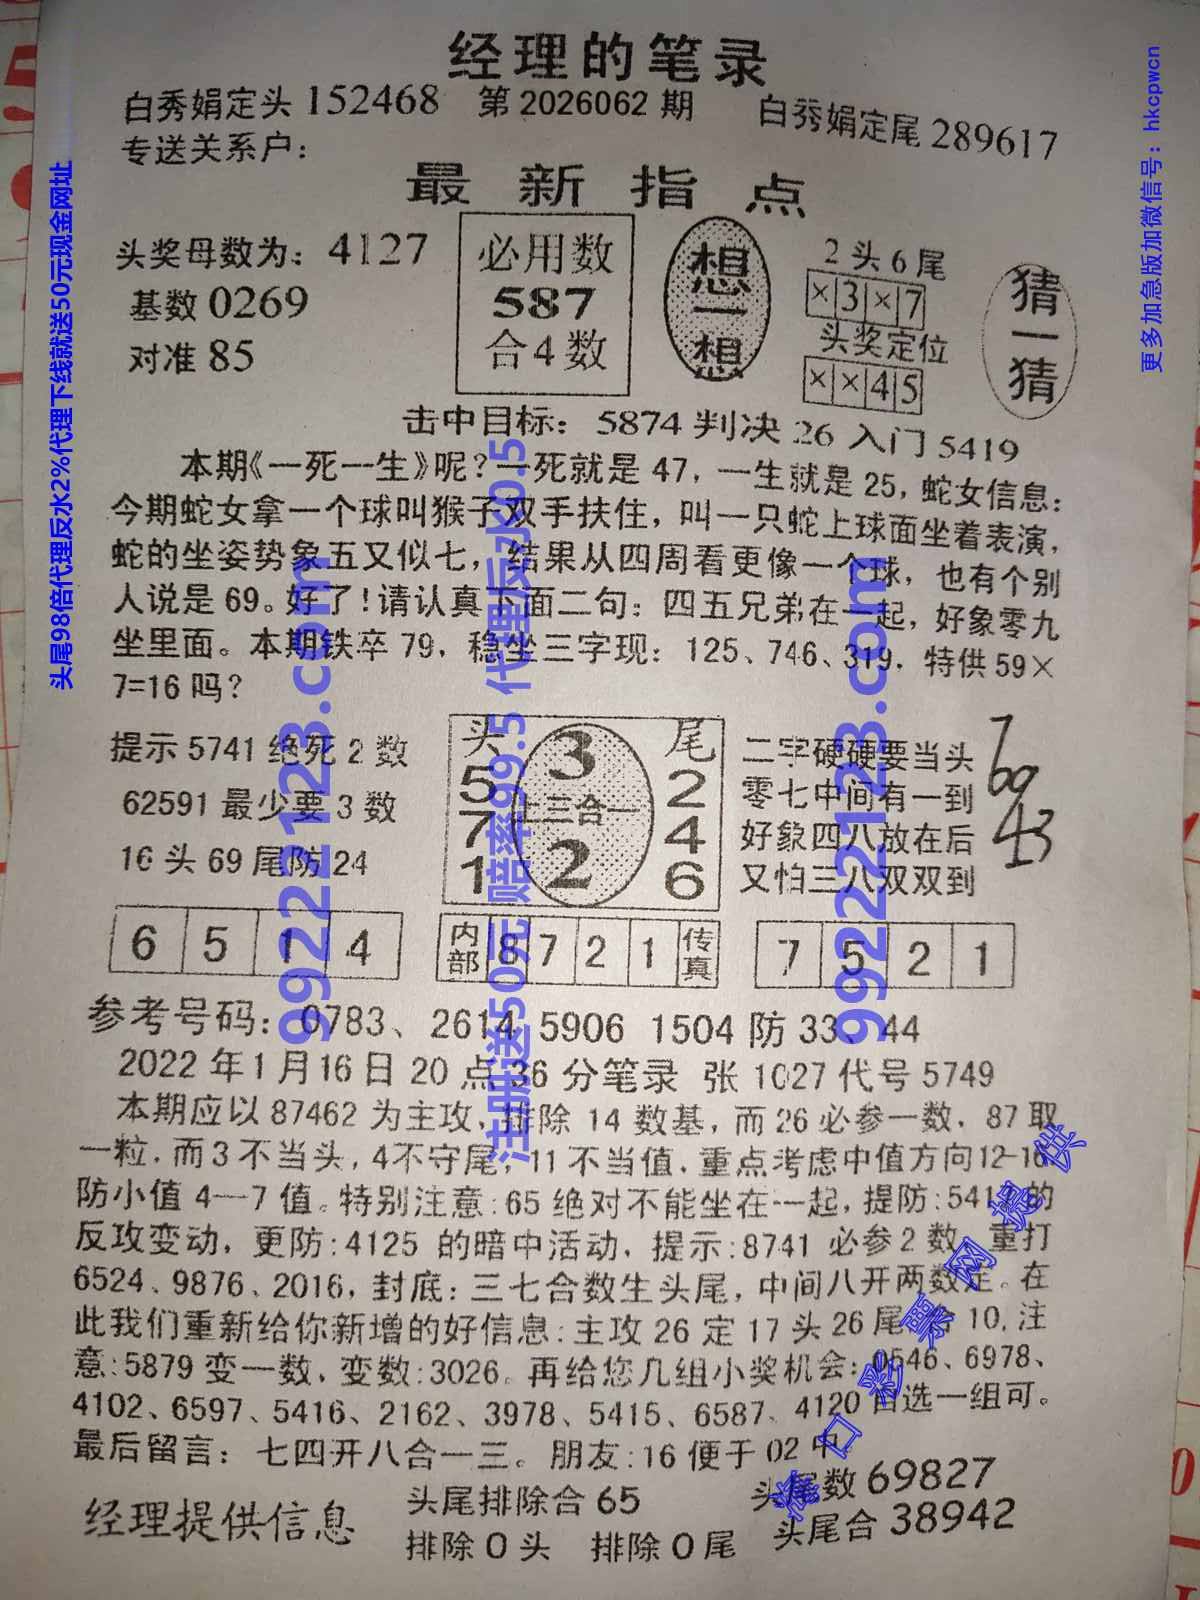 经理的笔录
白秀娟定头 152468 第 2026062 期 白秀娟定尾 289617
专送关系户：
最新指点
头奖母数为：4127
基数 0269
对准 85
必用数
587
合4数
想一想
2头6尾
×3×7
头奖定位
××45
猜一猜
击中目标：5874 判决 26 入门 5419
本期《一死一生》呢？一死就是 47，一生就是 25，蛇女信息：
今期蛇女拿一个球叫猴子双手扶住，叫一只蛇上球面坐着表演，
蛇的坐姿势象五又似七，结果从四周看更像一个球，也有个别
人说是 69。好了！请认真下面二句：四五兄弟在一起，好象零九
坐里面。本期铁卒 79，稳坐三字现：125、746、319，特供 59×
7=16 吗？
提示 5741 绝死 2 数
62591 最少要 3 数
16 头 69 尾防 24
头 3 尾
5 2
7 上三合一 4
1 2 6
二字硬硬要当头
零七中间有一到
好象四八放在后
又怕三八双双到
7
69
43
6 5 1 4
内部 8 7 2 1 传真
7 5 2 1
参考号码：0783、2614 5906 1504 防 33、44
2022 年 1 月 16 日 20 点 36 分笔录 张 1027 代号 5749
本期应以 87462 为主攻，排除 14 数基，而 26 必参一数，87 取
一粒，而 3 不当头，4不守尾，11 不当值，重点考虑中值方向12-16，
防小值 4—7 值。特别注意：65 绝对不能坐在一起，提防：541 的
反攻变动，更防：4125 的暗中活动，提示：8741 必参 2 数，重打
6524、9876、2016，封底：三七合数生头尾，中间八开两数定。在
此我们重新给你新增的好信息：主攻 26 定 17 头 26 尾合 10，注
意：5879 变一数，变数：3026。再给您几组小奖机会：0546、6978、
4102、6597、5416、2162、3978、5415、6587、4120 自选一组可。
最后留言：七四开八合一三。朋友：16 便于 02 中。
经理提供信息
头尾排除合 65
排除 0 头 排除 0 尾
头尾数 69827
头尾合 38942
头尾98倍代理反水2%代理下线就送50元现金网址
99222123.com
注册送50元 赔率99.5 代理反水0.5
99222123.com
更多加急版加微信号：hkcpwcn
海口彩票网提供